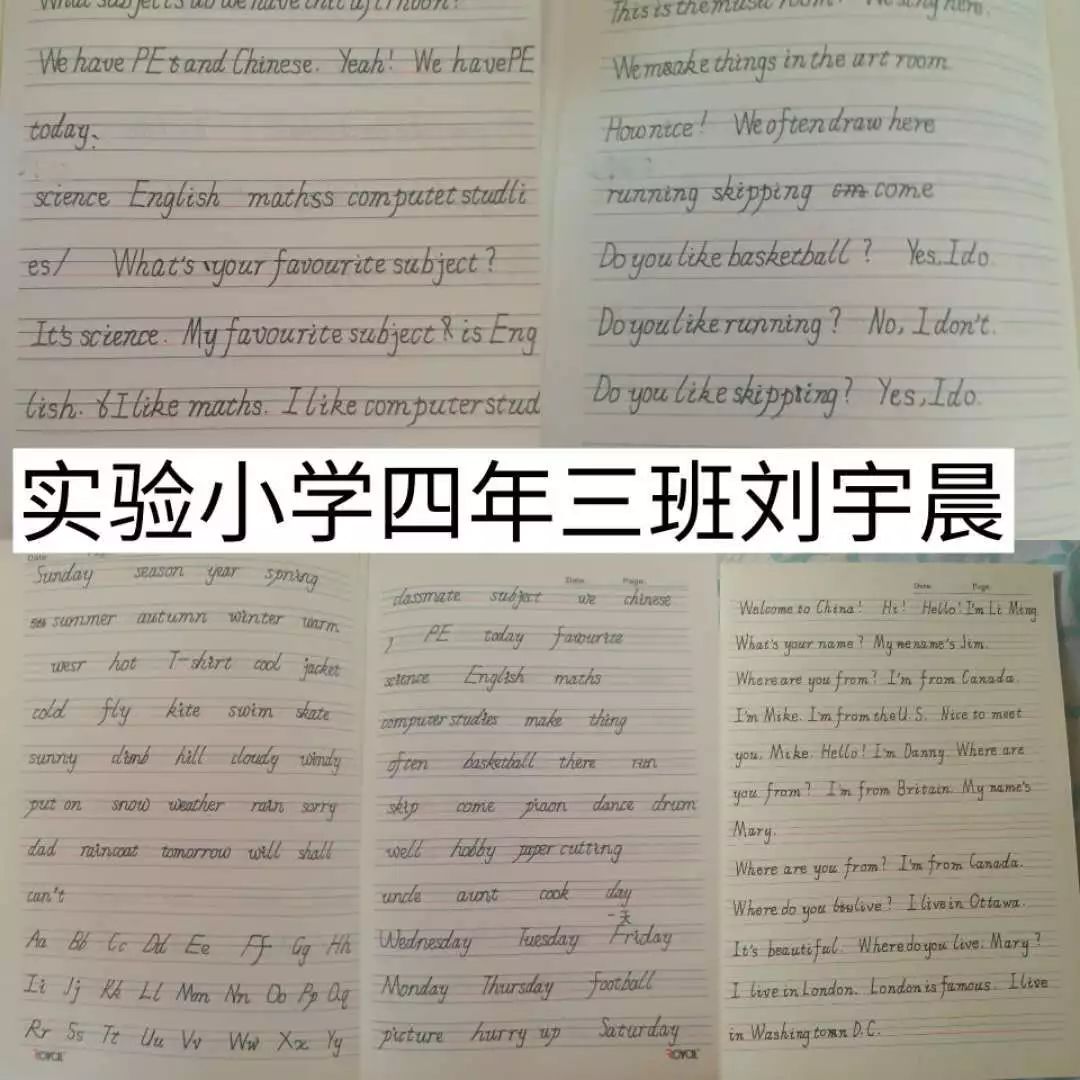 What subjects do we have this afternoon?
We have PE and Chinese. Yeah! We have PE
today.
science English mathss computet studli
es/ What's your favourite subject?
It's science. My favourite subject is Eng
lish. I like maths. I like computer stud
This is the music room. We sing here.
We make things in the art room
How nice! We often draw here
running skipping come
Do you like basketball? Yes, I do.
Do you like running? No, I don't.
Do you like skipping? Yes, I do.
实验小学四年三班刘宇晨
Date:
Sunday season year spning
summer autumn winter warm
wesr hot T-shirt cool jacket
cold fly kite swim skate
sunny climb hill cloudy windy
put on snow weather rain sorry
dad raincoat tomorrow will shall
can't
Aa Bb Cc Dd Ee Ff Gg Hh
Ii Jj Kk Ll Mm Nn Oo Pp Qq
Rr Ss Tt Uu Vv Ww Xx Yy
ROYCE
Date: Page:
classmate subject we chinese
PE today favourite
science English maths
computer studies make thing
often basketball there run
skip come piaon dance drum
well hobby paper cutting
uncle aunt cook day
一天
Wednesday Tuesday Friday
Monday Thursday football
picture hurry up Saturday
ROYCE
Date: Page:
Welcome to China! Hi! Hello! I'm Li Ming
What's your name? My name's Jim.
Where are you from? I'm from Canada.
I'm Mike. I'm from the U.S. Nice to meet
you, Mike. Hello! I'm Danny. Where are
you from? I'm from Britain. My name's
Mary.
Where are you from? I'm from Canada.
Where do you live? I live in Ottawa.
It's beautiful. Where do you live, Mary?
I live in London. London is famous. I live
in Washing town D.C.